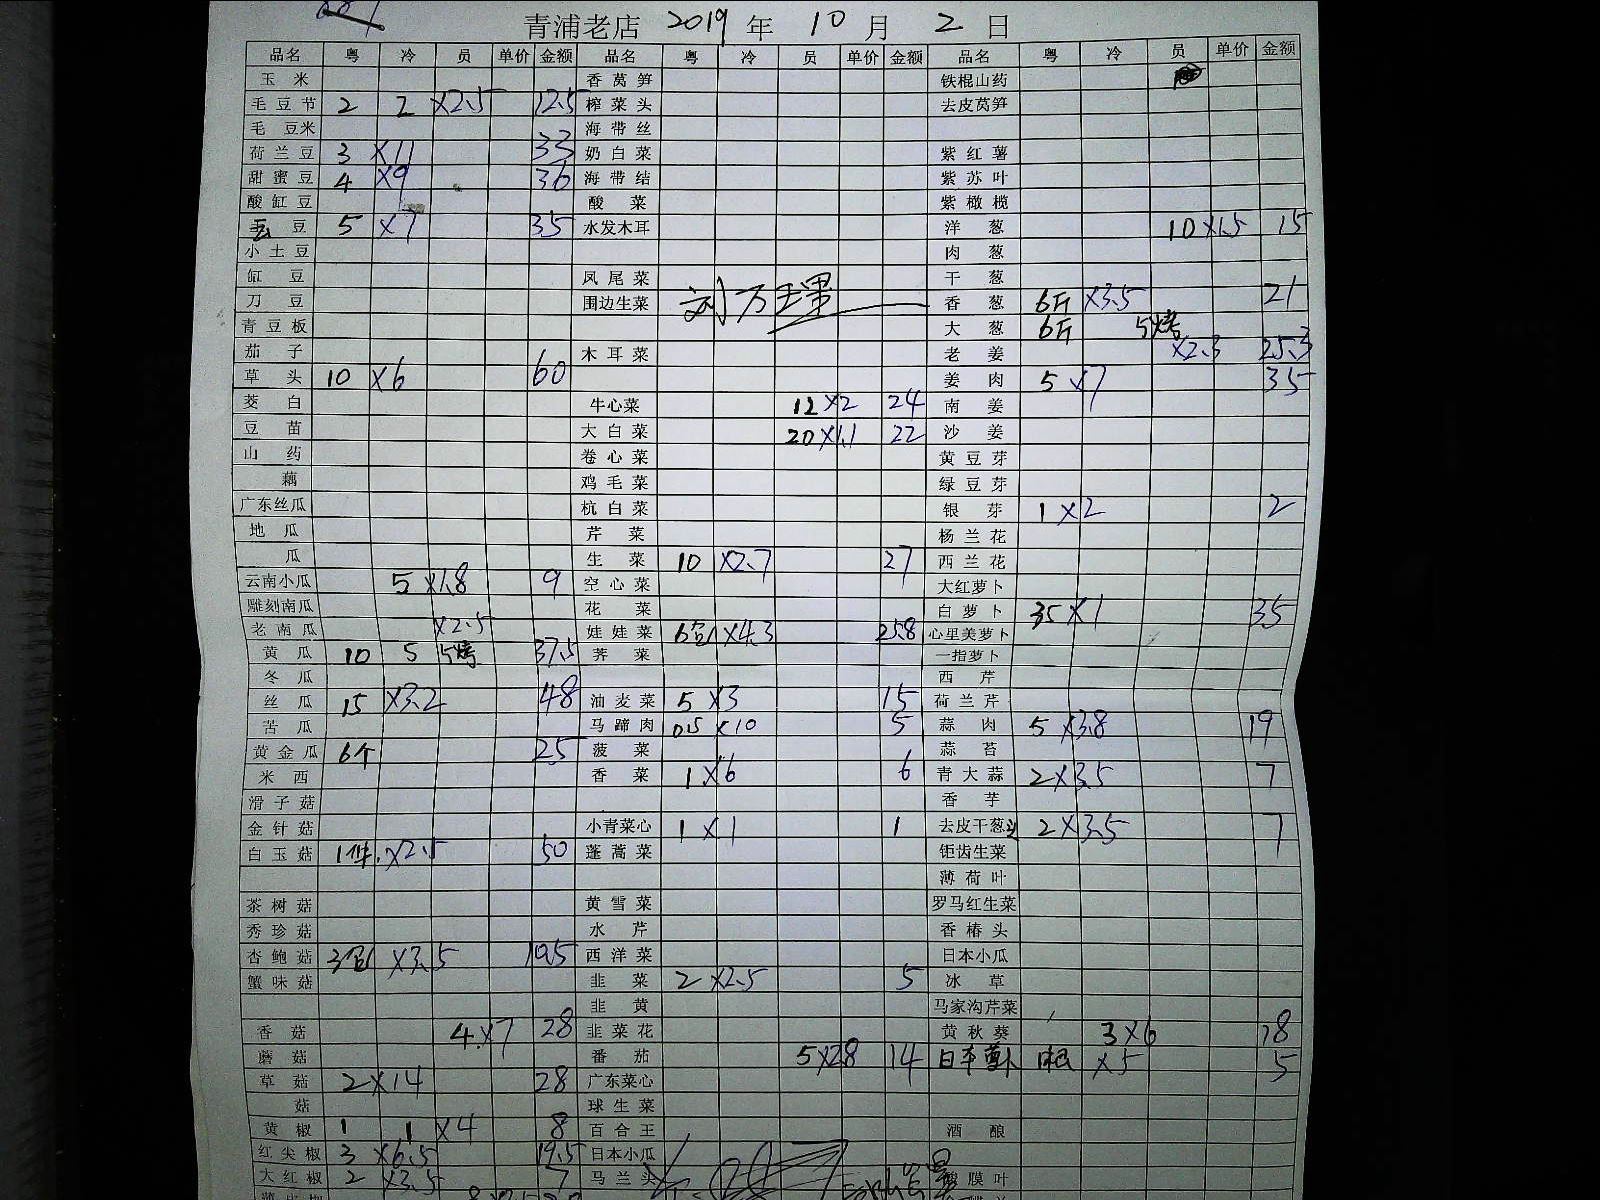 青浦老店 2019 年 10 月 2 日
品名 粤 冷 员 单价 金额 品名 粤 冷 员 单价 金额 品名 粤 冷 员 单价 金额
玉米 香莴笋 铁棍山药
毛豆节 2 2 ×2.5 12.5 榨菜头 去皮莴笋
毛豆米 海带丝
荷兰豆 3 ×11 33 奶白菜 紫红薯
甜蜜豆 4 ×9 36 海带结 紫苏叶
酸缸豆 酸菜 紫橄榄
豆 5 ×7 35 水发木耳 洋葱 10 ×1.5 15
小土豆 肉葱
缸豆 凤尾菜 干葱
刀豆 围边生菜 刘万理 香葱 6斤 ×3.5 21
青豆板 大葱 6斤 5烤
茄子 木耳菜 老姜 ×2.3 25.3
草头 10 ×6 60 姜肉 5 ×7 35
茭白 牛心菜 12 ×2 24 南姜
豆苗 大白菜 20 ×1.1 22 沙姜
山药 卷心菜 黄豆芽
藕 鸡毛菜 绿豆芽
广东丝瓜 杭白菜 银芽 1 ×2 2
地瓜 芹菜 杨兰花
瓜 生菜 10 ×2.7 27 西兰花
云南小瓜 5 ×1.8 9 空心菜 大红萝卜
雕刻南瓜 花菜 白萝卜 35 ×1 35
老南瓜 ×2.5 娃娃菜 6包 ×4.3 25.8 心里美萝卜
黄瓜 10 5 5烤 37.5 荠菜 一指萝卜
冬瓜 西芹
丝瓜 15 ×3.2 48 油麦菜 5 ×3 15 荷兰芹
苦瓜 马蹄肉 0.5 ×10 5 蒜肉 5 ×3.8 19
黄金瓜 6个 25 菠菜 蒜苔
米西 香菜 1 ×6 6 青大蒜 2 ×3.5 7
滑子菇 香芋
金针菇 小青菜心 1 ×1 1 去皮干葱头 2 ×3.5 7
白玉菇 1件 ×2.5 50 蓬蒿菜 钜齿生菜
薄荷叶
茶树菇 黄雪菜 罗马红生菜
秀珍菇 水芹 香椿头
杏鲍菇 3包 ×3.5 10.5 西洋菜 日本小瓜
蟹味菇 韭菜 2 ×2.5 5 冰草
韭黄 马家沟芹菜
香菇 4 ×7 28 韭菜花 黄秋葵 3 ×6 18
蘑菇 番茄 5 ×2.8 14 日本萝卜 1根 ×5 5
草菇 2 ×14 28 广东菜心
菇 球生菜
黄椒 1 1 ×4 8 百合王 酒酿
红尖椒 3 ×6.5 19.5 日本小瓜
大红椒 2 ×3.5 7 马兰头 酸膜叶